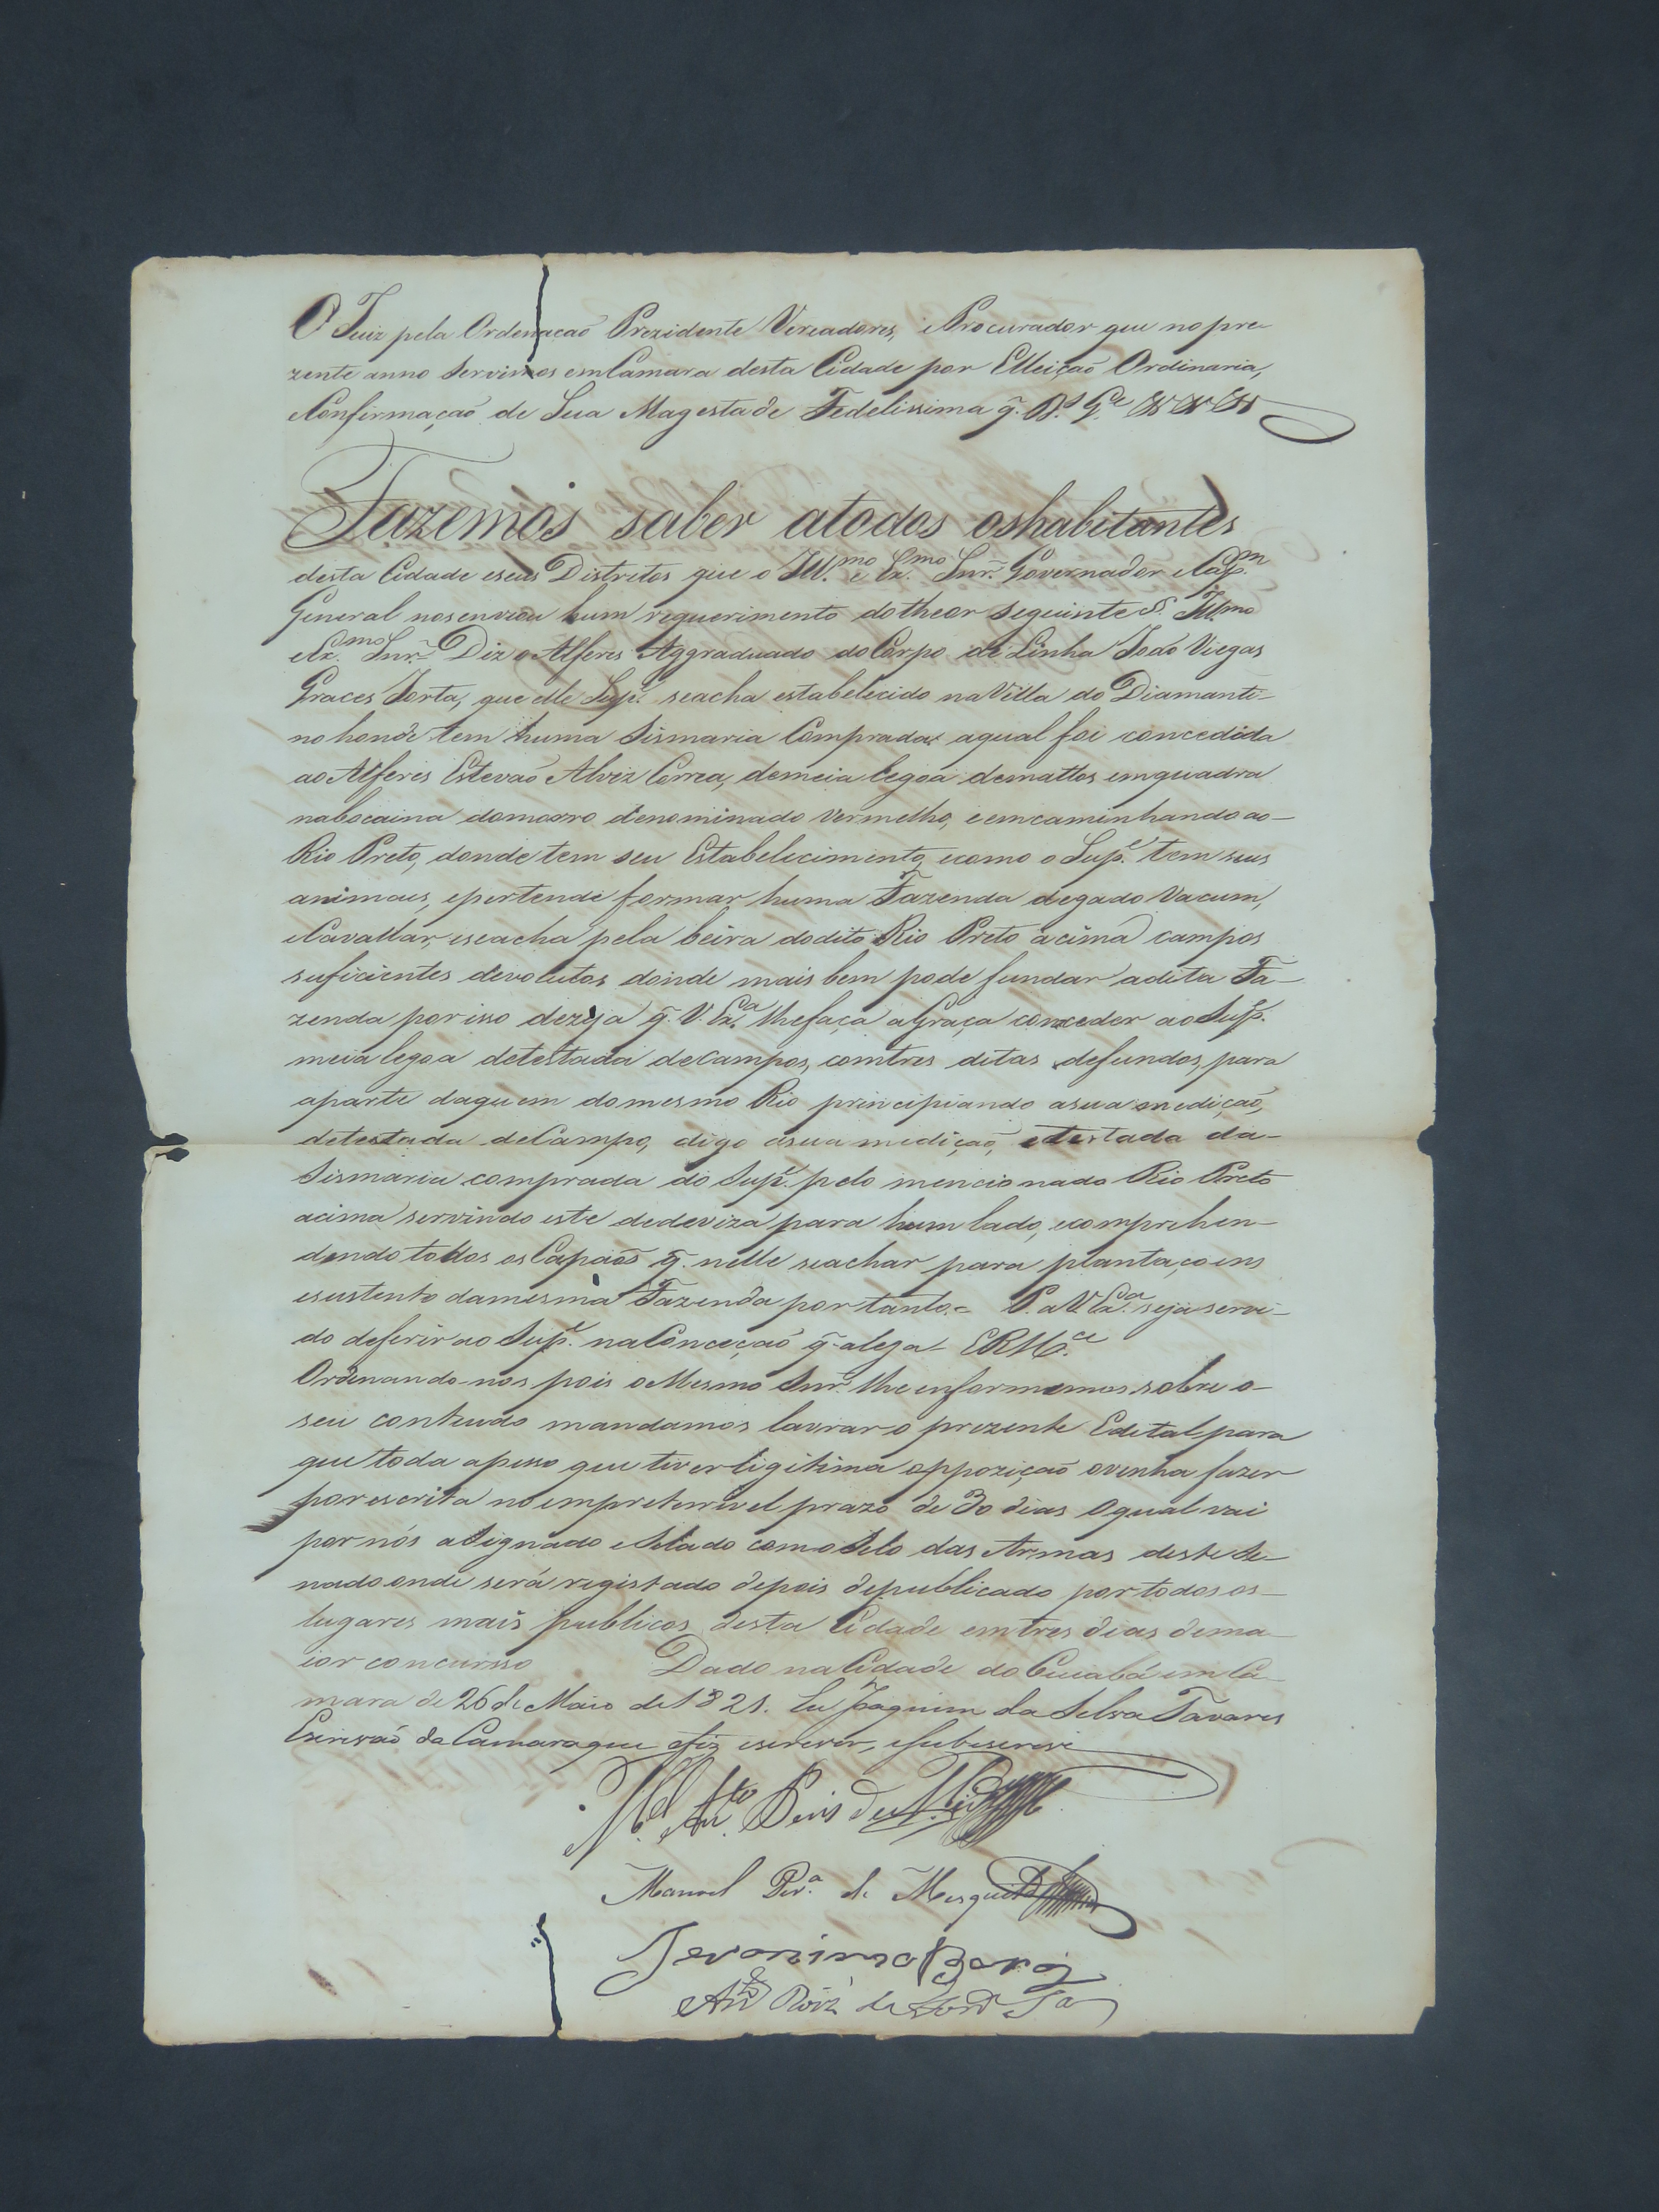 O Juiz pela Ordenaçaõ Prezidente Vereadores, eProcurador que no pre
zente anno Servimos emCamara desta Cidade por Elleiçaõ Ordinaria,
eConfirmaçaõ de Sua Magestade Fedelissima q̃. Ds. Ge.
Fazemos saber atodos oshabitantes
desta Cidade eseus Distritos que o Illmo. e Exmo. Snr. Governador eCapm.
General nosenviou hum requerimento dotheor seguinte S. Illmo.
eExmo. Snr. Diz oAlferes Aggraduado doCorpo de Linha Joaõ Viegas
Graces Jorta, que elle Supe. seacha estabelecido naVilla do Diamanti-
no honde tem huma Sismaria Comprada aqual foi concedida
ao Alferes Estevaõ Alvez Correa, demeia legoa demattos emquadra
nabocaina domorro denominado Vermelho, eemcaminhando ao-
Rio Preto, donde tem seu Estabelecimento, ecomo o Supe. tem seus
animaes, epertende formar huma Fazenda degado Vacum,
eCavallar, eseacha pela beira dodito Rio Preto acima campos
suficientes devolutos donde mais bem pode fundar adita Fa-
zenda porisso dezeja q̃. V. Exa. lhefaça aGraça conceder ao Supe.
meia legoa detestada deCampos, comtres ditas defundos, para
aparte daquem domesmo Rio principiando asua mediçaõ,
detestada deCampo, digo asua mediçaõ, etestada da-
Sismaria comprada do Supe. pelo mencionado Rio Preto
acima servindo este dedeviza para hum lado, ecomprehen-
dendo todos osCapaõs q̃. nelle seachar para plantaçoens
esustento damesma Fazenda portanto.= P. aV. Exa. seja servi-
do deferir ao Supe. naConceçaõ q̃ alega- ERMce.
Ordenando-nos pois oMesmo Snr. lhe enformemos sobre o-
seu contheudo mandamos lavrar o prezente Edital para
que toda apesso que tiver ligitima oppoziçaõ ovenha fazer
porescrita noempreterivel prazo de 30 dias Oqual vai
por nós aSignado eSelado comoSelo das Armas deste Se-
nado onde será registado depois depublicado portodos os-
lugares mais publicos desta Cidade emtres dias dema
ior concursso Dado naCidade do Cuiabá em Ca-
mara de 26 de Maio de 1821. Eu Joaquim da Silva Tavares
Escrivaõ daCamaraque ofiz escrever, eSubescrevi
Mel. Anto.
Manoel Pera. de Mesquita
Jeronimo